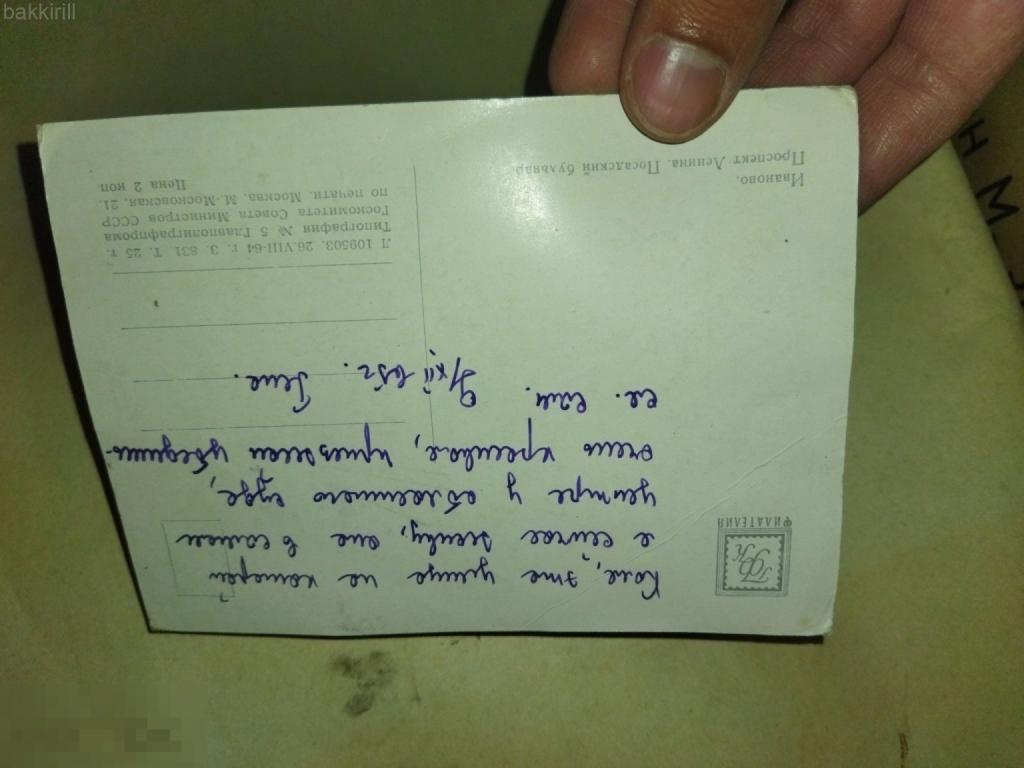 bakkirill
ФИЛАТЕЛИЯ
Коля, эта улица на которой
я сейчас живу, она в самом
центре у областного суда,
очень красивая, приезжай убедишь-
ся. сам.
9/XII 65г. Гена.
Л 109503. 26.VIII-64 г. З. 831. Т. 25 т.
Типография № 5 Главполиграфпрома
Госкомитета Совета Министров СССР
по печати. Москва, М.-Московская, 21.
Цена 2 коп.
Иваново.
Проспект Ленина. Посадский бульвар
Н
М